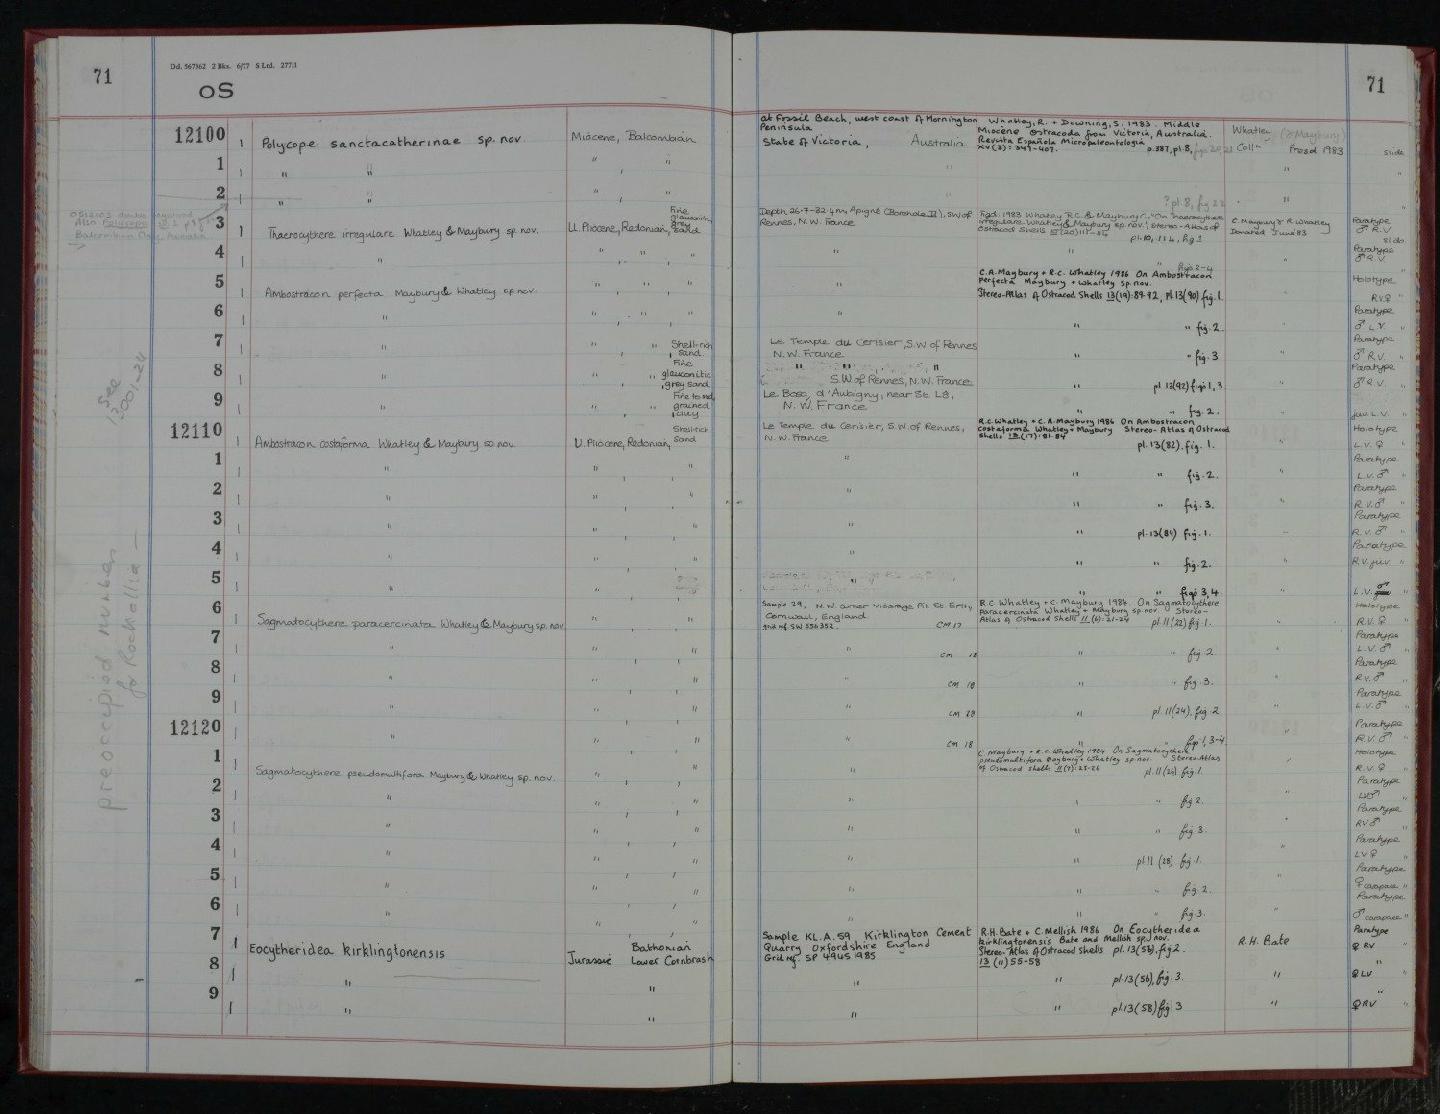 71
Dd. 567362 2 Bks. 6/77 S Ltd. 2771
OS
71
12100 1 Polycope sanctacatherinae sp. nov. Miocene, Balcombian
at Fossil Beach, west coast of Mornington
Peninsula
State of Victoria, Australia
Whatley, R. + Downing, S. 1983. Middle
Miocene Ostracoda from Victoria, Australia.
Revista Española Micropaleontologia
XV(3): 347-407. p.387, pl.8, figs 20, 21
Whatley (& Maybury)
Colln Presd 1983 slide
1 1 " " " " " "
2 1 " " " " ? pl. 8, fig 22 " "
3 1 Thaerocythere irregulare Whatley & Maybury sp. nov. U. Pliocene, Redonian, Fine
glauconitic
grey
sand
Depth 26.7-32.4m, Apigné (Borehole II), SW of
Rennes, N.W. France
Figd. 1983 Whatley R.C. & Maybury C. "On Thaerocythere
irregulare Whatley & Maybury sp. nov." Stereo-Atlas of
Ostracod Shells
C. Maybury & R. Whatley
Donated June '83
Paratype
♂ R.V.
slide
4 1 " " " " " " figs 2-4 " Paratype
♂ R.V. "
5 1 Ambostracon perfecta Maybury & Whatley sp nov. " " " "
C.A. Maybury + R.C. Whatley 1986 On Ambostracon
perfecta Maybury + Whatley sp. nov.
Stereo-Atlas of Ostracod Shells 13(19): 89-92, pl.13(90) fig.1.
Holotype
R.V.♀ "
6 1 " " " " " " " fig. 2. " Paratype
♂ L.V. "
7 1 " " " Shell-rich
sand
Le Temple du Cerisier, S.W of Rennes
N.W. France
" " fig. 3 " Paratype
♂ R.V. "
8 1 " " " Fine
glauconitic
grey sand
S.W of Rennes, N.W. France
" pl. 13(92) figs 1, 3 " Paratype
♂ R.V. "
9 1 " " " Fine to med.
grained
clay
Le Bosc, d'Aubigny, near St. Lô,
N.W. France
" " fig. 2. " juv L.V. "
12110 1 Ambostracon costaforma Whatley & Maybury sp nov. U. Pliocene, Redonian, Shell-rich
sand
Le Temple du Cerisier, S.W of Rennes,
N.W. France
R.C. Whatley + C.A. Maybury 1986 On Ambostracon
costaforma Whatley + Maybury Stereo-Atlas of Ostracod
Shells 13(17): 81-84 pl.13(82). fig. 1.
Holotype
L.V. ♀ "
1 1 " " " " " " " fig. 2. " Paratype
L.V. ♂ "
2 1 " " " " " " " fig. 3. " Paratype
R.V. ♂ "
3 1 " " " " " " pl.13(84) fig. 1. " Paratype
R.V. ♂ "
4 1 " " " " " " " fig. 2. " Paratype
R.V. juv "
5 1 " " " " " " figs 3, 4 " L.V. ♂ "
6 1 Sagmatocythere paracercinata Whatley & Maybury sp. nov.
Sample 29, N.W. corner Vicarage Pit St. Erth,
Cornwall, England
grid ref SW 556352. CM 17
R.C Whatley + C. Maybury 1984. On Sagmatocythere
paracercinata Whatley + Maybury sp nov Stereo-
Atlas of Ostracod Shells 11(6): 21-24 pl. 11(22) fig. 1.
Holotype
R.V. ♀ "
7 1 " " " " " CM 18 " " fig. 2 " Paratype
L.V. ♂ "
8 1 " " " " " CM 18 " " fig. 3. " Paratype
R.V. ♂ "
9 1 " " " " " CM 28 " pl. 11(24), fig. 2 " Paratype
L.V. ♂ "
12120 1 " " " " " CM 18 " " figs 1, 3-4. " Paratype
R.V. ♂ "
1 1 Sagmatocythere pseudomultifora Maybury & Whatley sp. nov. " " " "
C. Maybury + R.C. Whatley 1984 On Sagmatocythere
pseudomultifora Maybury + Whatley sp. nov. Stereo-Atlas
of Ostracod Shells 11(7): 25-28 pl. 11(26) fig. 1.
Holotype
R.V. ♀ "
2 1 " " " " " " " fig 2. " Paratype
LV♂ "
3 1 " " " " " " " fig 3. " Paratype
RV ♂ "
4 1 " " " " " " pl.11 (28) fig. 1. " Paratype
LV ♀ "
5 1 " " " " " " " fig. 2. " Paratype
♀ carapace "
6 1 " " " " " " " fig. 3. " Paratype
♂ carapace "
7 1 Eocytheridea kirklingtonensis Jurassic Bathonian
Lower Cornbrash
Sample KL.A.59 Kirklington Cement
Quarry Oxfordshire England
Grid ref. SP 4945 1985
R.H. Bate + C. Mellish 1986 On Eocytheridea
kirklingtonensis Bate and Mellish sp. nov.
Stereo-Atlas of Ostracod Shells pl. 13(56). fig 2.
13 (11) 55-58
R.H. Bate
Paratype
♀ RV "
8 1 " " " " pl.13(56), fig. 3. " ♀ LV "
9 1 " " " " pl.13(58) fig 3 " ♀ RV "
See
13001-24
preoccipied number
for Rochellia —